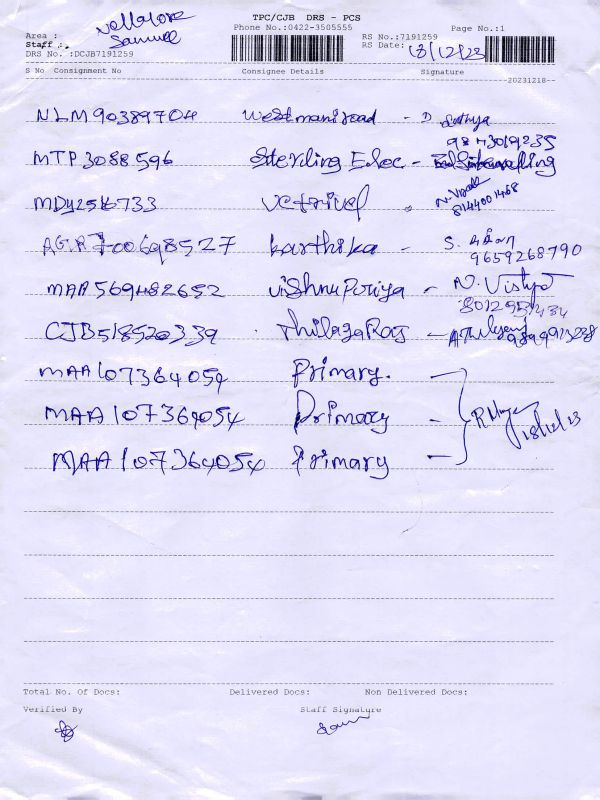 TPC/CJB DRS - PCS
Phone No.:0422-3505555
Page No.:1
Area :
Staff : Samuel
DRS No. :DCJB7191259
RS No.:7191259
RS Date: 18/12/23
S No Consignment No Consignee Details Signature
20231218
NLM90389704 westmani road - D
9843019235
MTP3088596 Sterling Elec -
MDY2516733 vetrivel
8144001468
AGR700698527 karthika - S.
9659268790
MAA569482652 vishnu Puriya - N.
CJB518520339 Thilaga Raj -
MAA107364054 Primary. -
MAA107364054 Primary -
18/12/23
MAA107364054 Primary -
Total No. Of Docs: Delivered Docs: Non Delivered Docs:
Verified By Staff Signature